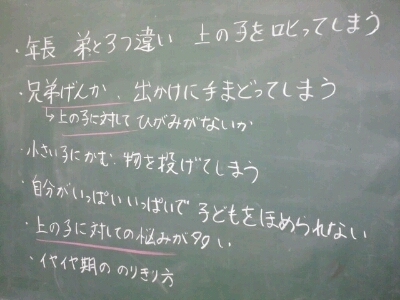 ・年長 弟と3つ違い 上の子を叱ってしまう
・兄弟げんか、出かけに手まどってしまう
↳上の子に対して ひがみがないか
・小さい子にかむ、物を投げてしまう
・自分がいっぱいいっぱいで 子どもをほめられない
・上の子に対しての悩みが多い
・イヤイヤ期の のりきり方